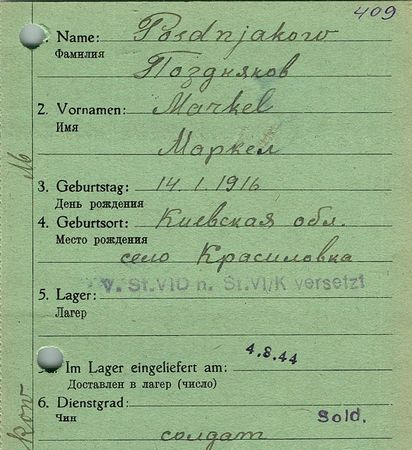 409
1. Name: Posdnjakow
Фамилия
Поздняков
2. Vornamen: Markel
Имя
Маркел
3. Geburtstag: 14.1.1916
День рождения
4. Geburtsort: Киевская обл.
Место рождения
село Красиловка
V. St.VID n. St.VI/K versetzt
5. Lager:
Лагер
Im Lager eingeliefert am: 4.8.44
Доставлен в лагер (число)
6. Dienstgrad: Sold.
Чин
солдат